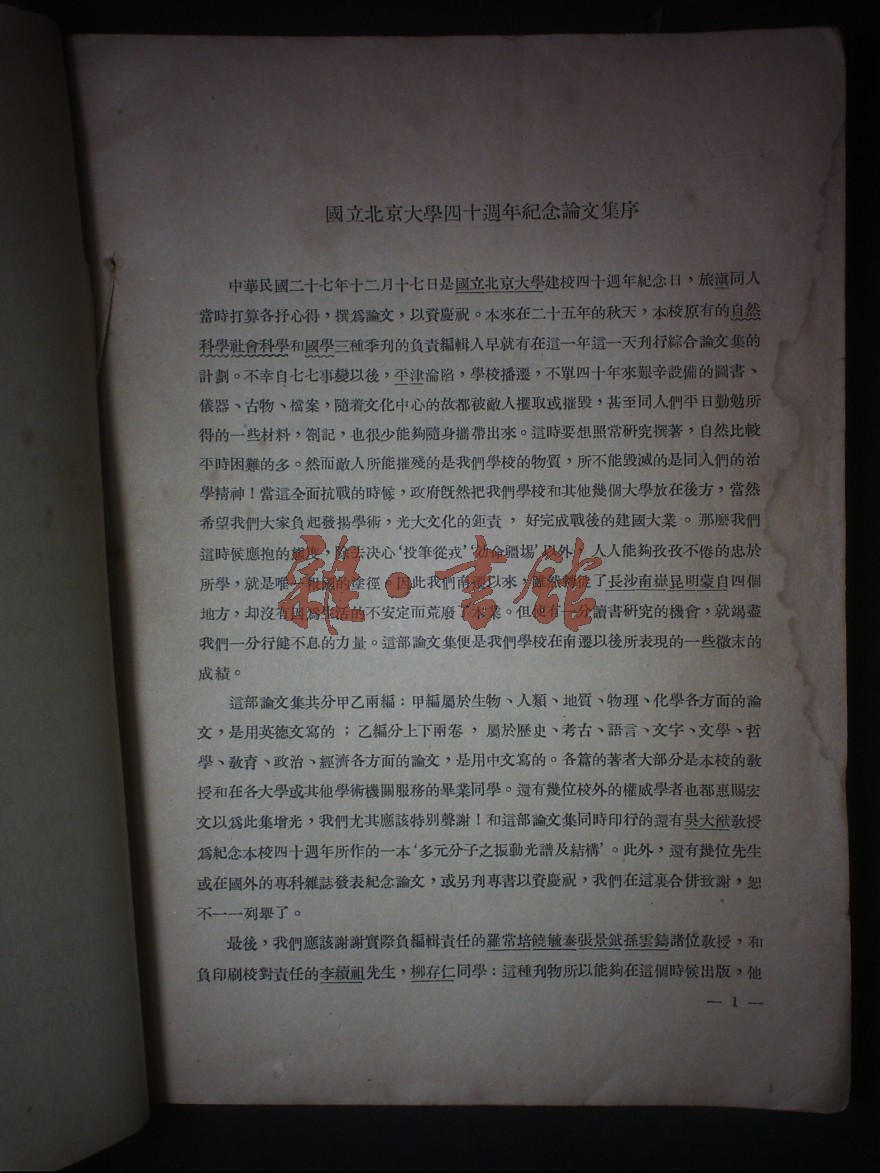 國立北京大學四十週年紀念論文集序
中華民國二十七年十二月十七日是國立北京大學建校四十週年紀念日，旅滇同人
當時打算各抒心得，撰爲論文，以資慶祝。本來在二十五年的秋天，本校原有的自然
科學社會科學和國學三種季刊的負責編輯人早就有在這一年這一天刊行綜合論文集的
計劃。不幸自七七事變以後，平津淪陷，學校播遷，不單四十年來艱辛設備的圖書、
儀器、古物、檔案，隨着文化中心的故都被敵人攫取或摧毀，甚至同人們平日勤勉所
得的一些材料，劄記，也很少能夠隨身攜帶出來。這時要想照常研究撰著，自然比較
平時困難的多。然而敵人所能摧殘的是我們學校的物質，所不能毀滅的是同人們的治
學精神！當這全面抗戰的時候，政府旣然把我們學校和其他幾個大學放在後方，當然
希望我們大家負起發揚學術，光大文化的鉅責，好完成戰後的建國大業。那麼我們
這時候應抱的態度，除去決心‘投筆從戎’‘効命疆場’以外，人人能夠孜孜不倦的忠於
所學，就是唯一報國的途徑。因此我們南遷以來，雖然轉徙了長沙南嶽昆明蒙自四個
地方，却沒有因爲生活的不安定而荒廢了本業。但使有一分讀書研究的機會，就竭盡
我們一分行健不息的力量。這部論文集便是我們學校在南遷以後所表現的一些微末的
成績。
這部論文集共分甲乙兩編：甲編屬於生物、人類、地質、物理、化學各方面的論
文，是用英德文寫的；乙編分上下兩卷，屬於歷史、考古、語言、文字、文學、哲
學、敎育、政治、經濟各方面的論文，是用中文寫的。各篇的著者大部分是本校的敎
授和在各大學或其他學術機關服務的畢業同學。還有幾位校外的權威學者也都惠賜宏
文以爲此集增光，我們尤其應該特別聲謝！和這部論文集同時印行的還有吳大猷敎授
爲紀念本校四十週年所作的一本‘多元分子之振動光譜及結構’。此外，還有幾位先生
或在國外的專科雜誌發表紀念論文，或另刊專書以資慶祝，我們在這裏合併致謝，恕
不一一列舉了。
最後，我們應該謝謝實際負編輯責任的羅常培饒毓泰張景鉞孫雲鑄諸位敎授，和
負印刷校對責任的李續祖先生，柳存仁同學：這種刊物所以能夠在這個時候出版，他
— 1 —
雜·書館